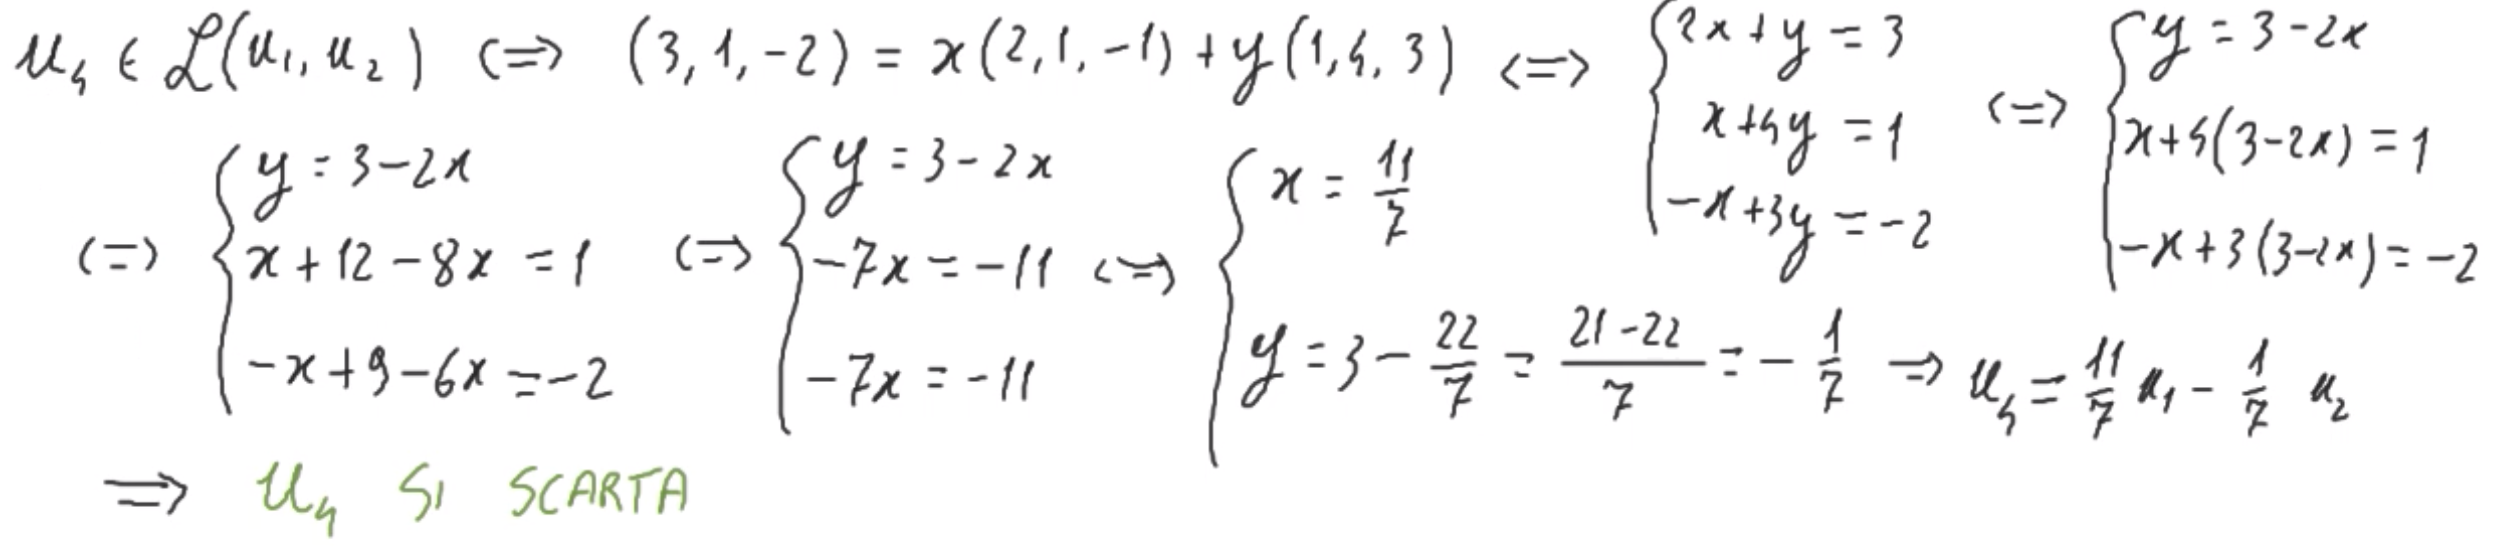 u₄ ∈ ℒ(u₁, u₂) <=> (3, 1, -2) = x(2, 1, -1) + y(1, 4, 3) <=> { 2x + y = 3 ; x + 4y = 1 ; -x + 3y = -2 <=> { y = 3 - 2x ; x + 4(3 - 2x) = 1 ; -x + 3(3 - 2x) = -2
<=> { y = 3 - 2x ; x + 12 - 8x = 1 ; -x + 9 - 6x = -2 <=> { y = 3 - 2x ; -7x = -11 ; -7x = -11 <=> { x = 11/7 ; y = 3 - 22/7 = (21 - 22)/7 = - 1/7 => u₄ = 11/7 u₁ - 1/7 u₂
=> u₄ SI SCARTA